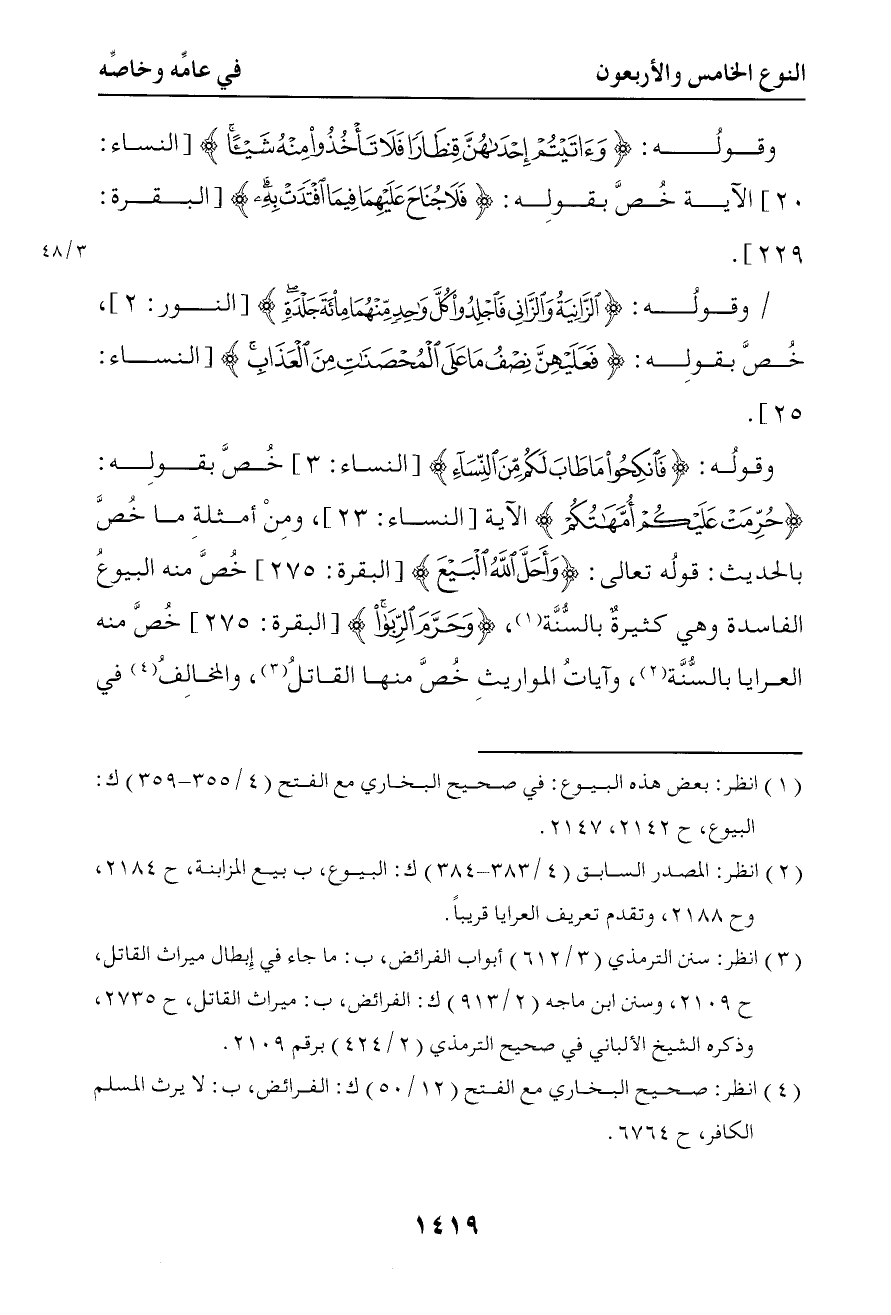 النوع الخامس والأربعون في عامِّه وخاصِّه
وقولُه: ﴿ وَءَاتَيْتُمْ إِحْدَىٰهُنَّ قِنطَارًا فَلَا تَأْخُذُوا۟ مِنْهُ شَيْـًٔا ۚ ﴾ [ النساء:
٢٠ ] الآية خُصَّ بقولِه: ﴿ فَلَا جُنَاحَ عَلَيْهِمَا فِيمَا ٱفْتَدَتْ بِهِۦ ۗ ﴾ [ البقرة:
٢٢٩ ]. ٤٨/٣
/ وقولُه: ﴿ ٱلزَّانِيَةُ وَٱلزَّانِى فَٱجْلِدُوا۟ كُلَّ وَٰحِدٍ مِّنْهُمَا مِا۟ئَةَ جَلْدَةٍ ۖ ﴾ [ النور: ٢ ]،
خُصَّ بقولِه: ﴿ فَعَلَيْهِنَّ نِصْفُ مَا عَلَى ٱلْمُحْصَنَٰتِ مِنَ ٱلْعَذَابِ ۚ ﴾ [ النساء:
٢٥ ].
وقولُه: ﴿ فَٱنكِحُوا۟ مَا طَابَ لَكُم مِّنَ ٱلنِّسَآءِ ﴾ [ النساء: ٣ ] خُصَّ بقولِه:
﴿ حُرِّمَتْ عَلَيْكُمْ أُمَّهَٰتُكُمْ ﴾ الآية [ النساء: ٢٣ ]، ومنْ أمثلة ما خُصَّ
بالحديث: قولُه تعالى: ﴿ وَأَحَلَّ ٱللَّهُ ٱلْبَيْعَ ﴾ [ البقرة: ٢٧٥ ] خُصَّ منه البيوعُ
الفاسدة وهي كثيرةٌ بالسُّنَّة(١)، ﴿ وَحَرَّمَ ٱلرِّبَوٰا۟ ۚ ﴾ [ البقرة: ٢٧٥ ] خُصَّ منه
العرايا بالسُّنَّة(٢)، وآياتُ المواريثِ خُصَّ منها القاتلُ(٣)، والمخالِفُ(٤) في
(١) انظر: بعض هذه البيوع: في صحيح البخاري مع الفتح (٤/ ٣٥٥–٣٥٩) ك:
البيوع، ح ٢١٤٢، ٢١٤٧.
(٢) انظر: المصدر السابق (٤/ ٣٨٣–٣٨٤) ك: البيوع، ب بيع المزابنة، ح ٢١٨٤،
وح ٢١٨٨، وتقدم تعريف العرايا قريباً.
(٣) انظر: سنن الترمذي (٣/ ٦١٢) أبواب الفرائض، ب: ما جاء في إبطال ميراث القاتل،
ح ٢١٠٩، وسنن ابن ماجه (٢/ ٩١٣) ك: الفرائض، ب: ميراث القاتل، ح ٢٧٣٥،
وذكره الشيخ الألباني في صحيح الترمذي (٢/ ٤٢٤) برقم ٢١٠٩.
(٤) انظر: صحيح البخاري مع الفتح (١٢/ ٥٠) ك: الفرائض، ب: لا يرث المسلم
الكافر، ح ٦٧٦٤.
١٤١٩